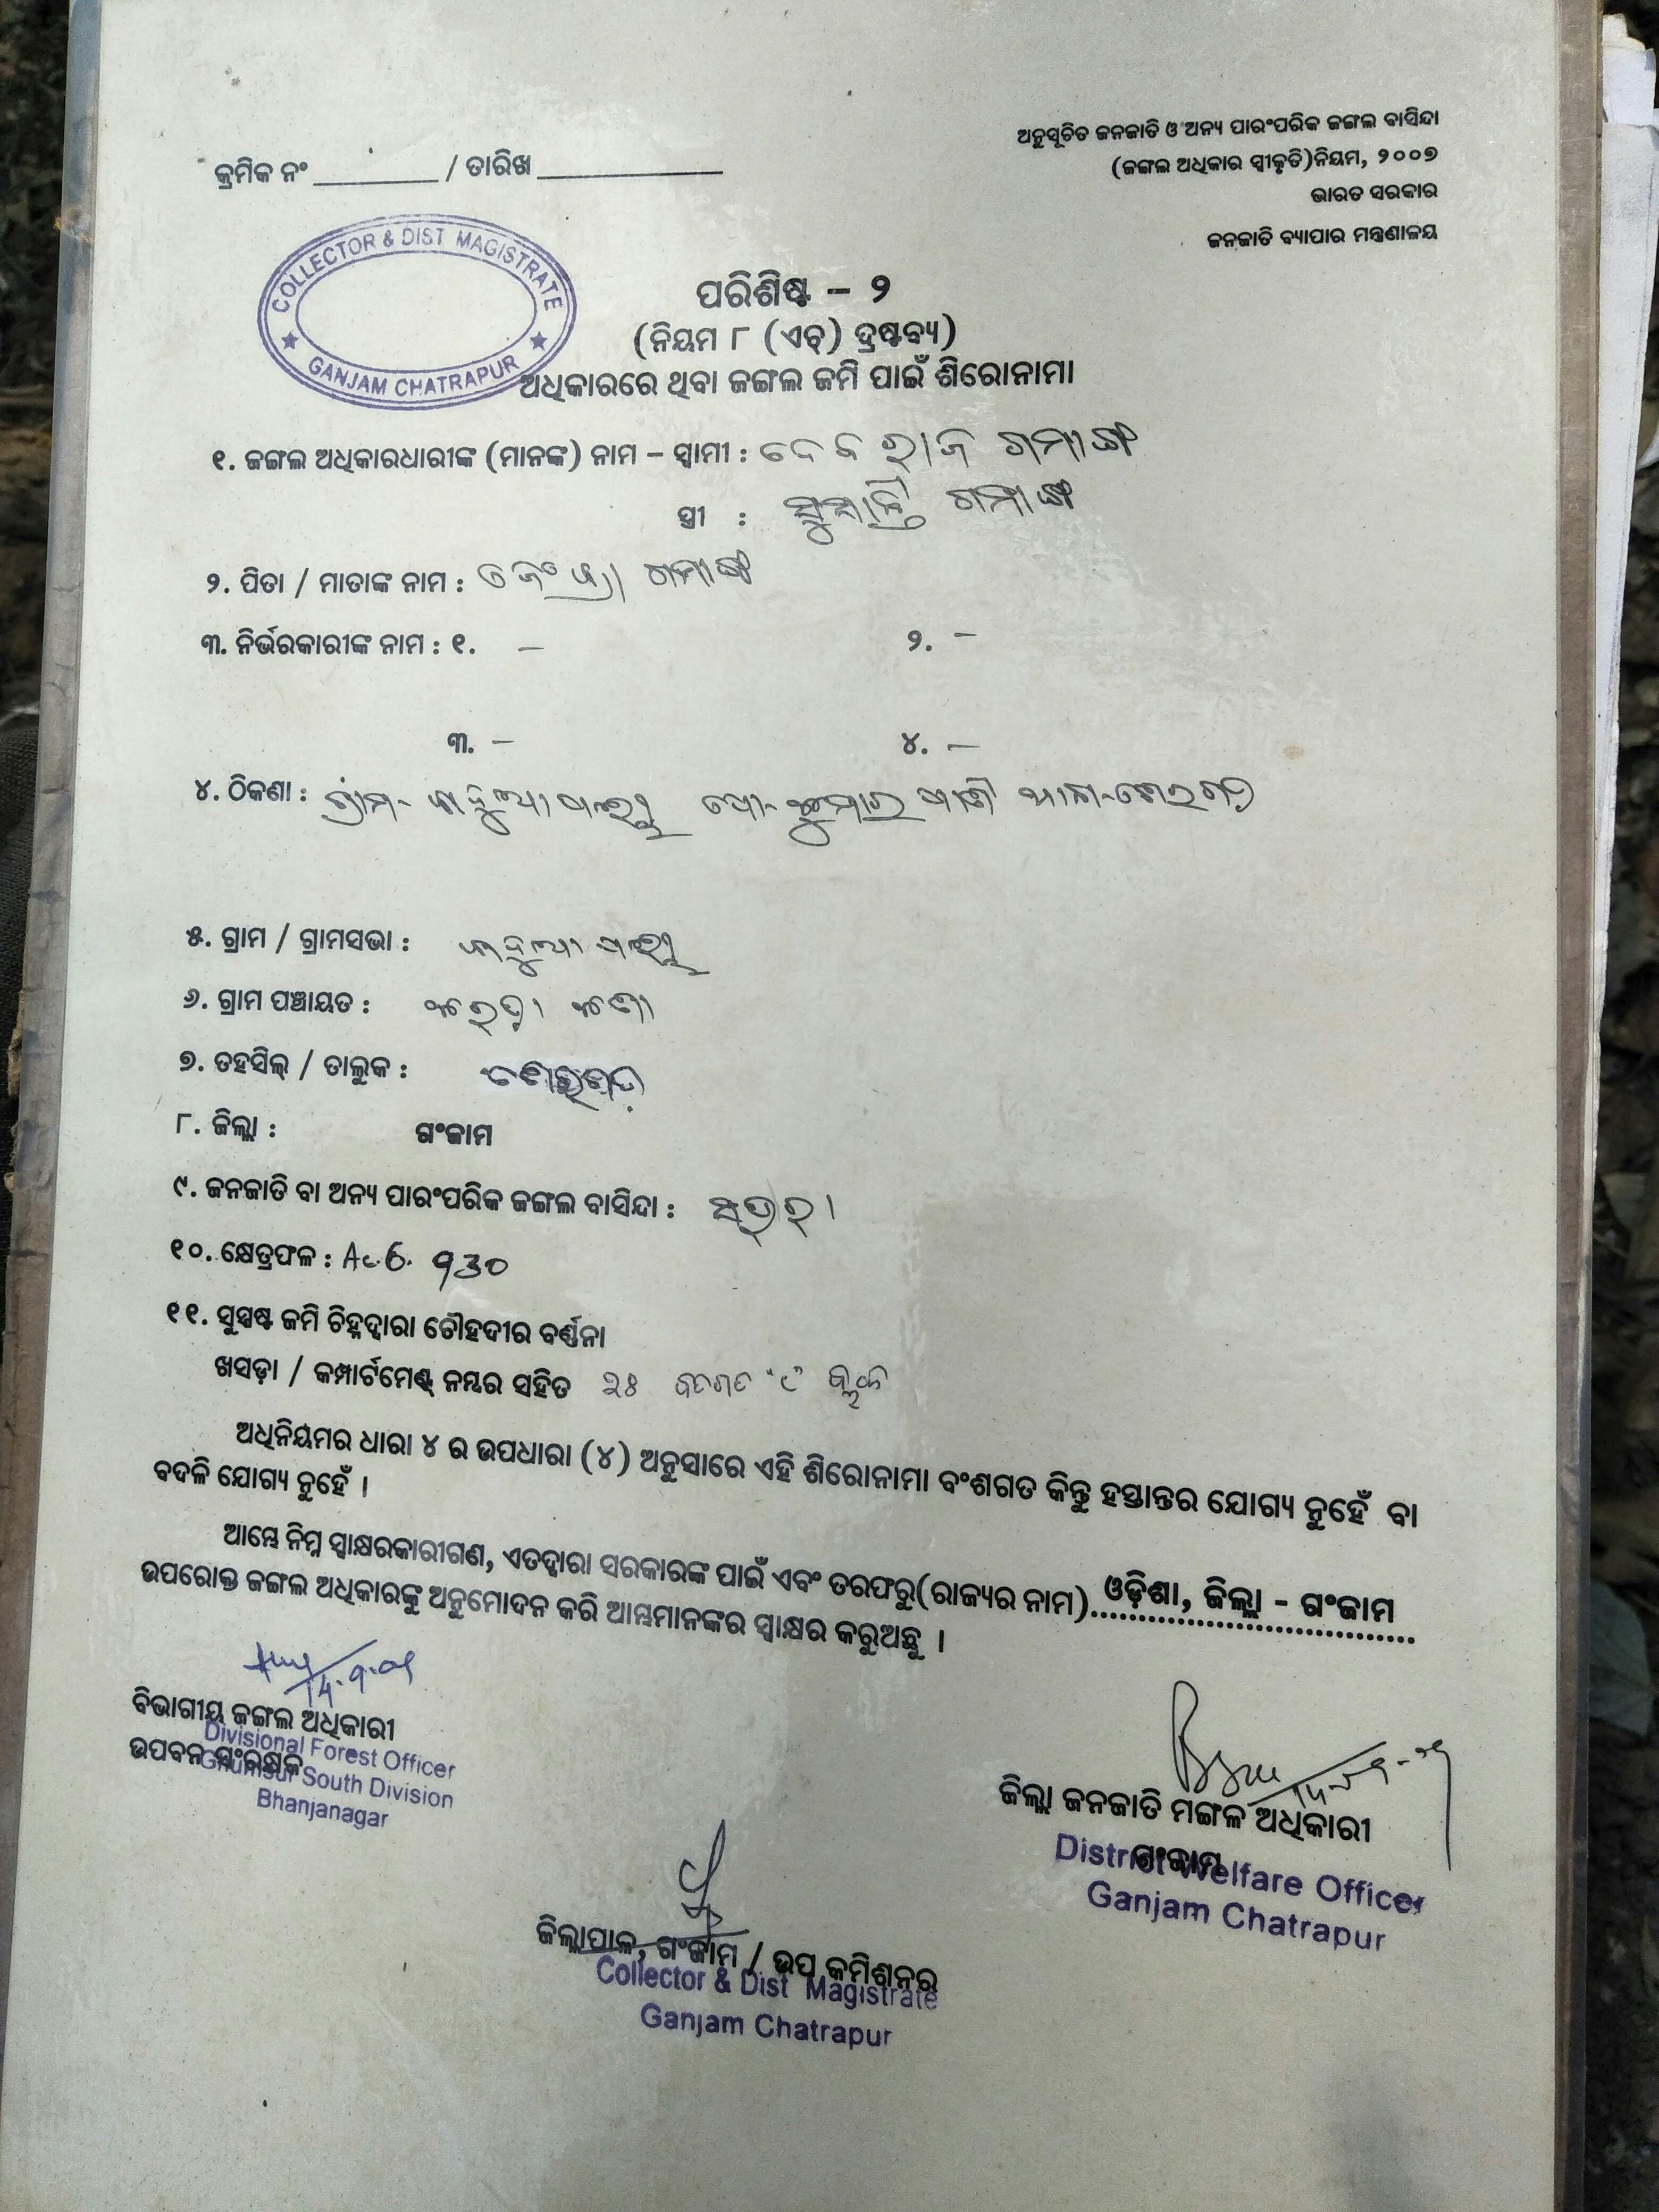 ଅନୁସୂଚିତ ଜନଜାତି ଓ ଅନ୍ୟ ପାରଂପରିକ ଜଙ୍ଗଲ ବାସିନ୍ଦା
(ଜଙ୍ଗଲ ଅଧିକାର ସ୍ୱୀକୃତି)ନିୟମ, ୨୦୦୭
ଭାରତ ସରକାର
ଜନଜାତି ବ୍ୟାପାର ମନ୍ତ୍ରଣାଳୟ
କ୍ରମିକ ନଂ ________ / ତାରିଖ ____________
COLLECTOR & DIST MAGISTRATE
GANJAM CHATRAPUR
ପରିଶିଷ୍ଟ – ୨
(ନିୟମ ୮ (ଏଚ୍) ଦ୍ରଷ୍ଟବ୍ୟ)
ଅଧିକାରରେ ଥିବା ଜଙ୍ଗଲ ଜମି ପାଇଁ ଶିରୋନାମା
୧. ଜଙ୍ଗଲ ଅଧିକାରଧାରୀଙ୍କ (ମାନଙ୍କ) ନାମ – ସ୍ୱାମୀ : ଦେବ ରାଜ ଗମାଙ୍ଗ
ସ୍ତ୍ରୀ : ଗମାଙ୍ଗ
୨. ପିତା / ମାତାଙ୍କ ନାମ : ଗମାଙ୍ଗ
୩. ନିର୍ଭରକାରୀଙ୍କ ନାମ : ୧. – ୨. –
୩. – ୪. –
୪. ଠିକଣା : ଗ୍ରାମ-
୫. ଗ୍ରାମ / ଗ୍ରାମସଭା :
୬. ଗ୍ରାମ ପଞ୍ଚାୟତ :
୭. ତହସିଲ୍ / ତାଲୁକ : ଶେରଗଡ଼
୮. ଜିଲ୍ଲା : ଗଂଜାମ
୯. ଜନଜାତି ବା ଅନ୍ୟ ପାରଂପରିକ ଜଙ୍ଗଲ ବାସିନ୍ଦା : ସଉରା
୧୦. କ୍ଷେତ୍ରଫଳ :
୧୧. ସୁସ୍ପଷ୍ଟ ଜମି ଚିହ୍ନଦ୍ୱାରା ଚୌହଦୀର ବର୍ଣ୍ଣନା
ଖସଡ଼ା / କମ୍ପାର୍ଟମେଣ୍ଟ୍ ନମ୍ବର ସହିତ
ଅଧିନିୟମର ଧାରା ୪ ର ଉପଧାରା (୪) ଅନୁସାରେ ଏହି ଶିରୋନାମା ବଂଶଗତ କିନ୍ତୁ ହସ୍ତାନ୍ତର ଯୋଗ୍ୟ ନୁହେଁ ବା
ବଦଳି ଯୋଗ୍ୟ ନୁହେଁ ।
ଆମ୍ଭେ ନିମ୍ନ ସ୍ୱାକ୍ଷରକାରୀଗଣ, ଏତଦ୍ଦ୍ୱାରା ସରକାରଙ୍କ ପାଇଁ ଏବଂ ତରଫରୁ(ରାଜ୍ୟର ନାମ) ଓଡ଼ିଶା, ଜିଲ୍ଲା - ଗଂଜାମ
ଉପରୋକ୍ତ ଜଙ୍ଗଲ ଅଧିକାରଙ୍କୁ ଅନୁମୋଦନ କରି ଆମ୍ଭମାନଙ୍କର ସ୍ୱାକ୍ଷର କରୁଅଛୁ ।
ବିଭାଗୀୟ ଜଙ୍ଗଲ ଅଧିକାରୀ
ଉପବନ ସଂରକ୍ଷକ
Divisional Forest Officer
Ghumsur South Division
Bhanjanagar
ଜିଲ୍ଲା ଜନଜାତି ମଙ୍ଗଳ ଅଧିକାରୀ
ଗଂଜାମ
District Welfare Officer
Ganjam Chatrapur
ଜିଲ୍ଲାପାଳ, ଗଂଜାମ / ଉପ କମିଶନର୍
Collector & Dist Magistrate
Ganjam Chatrapur